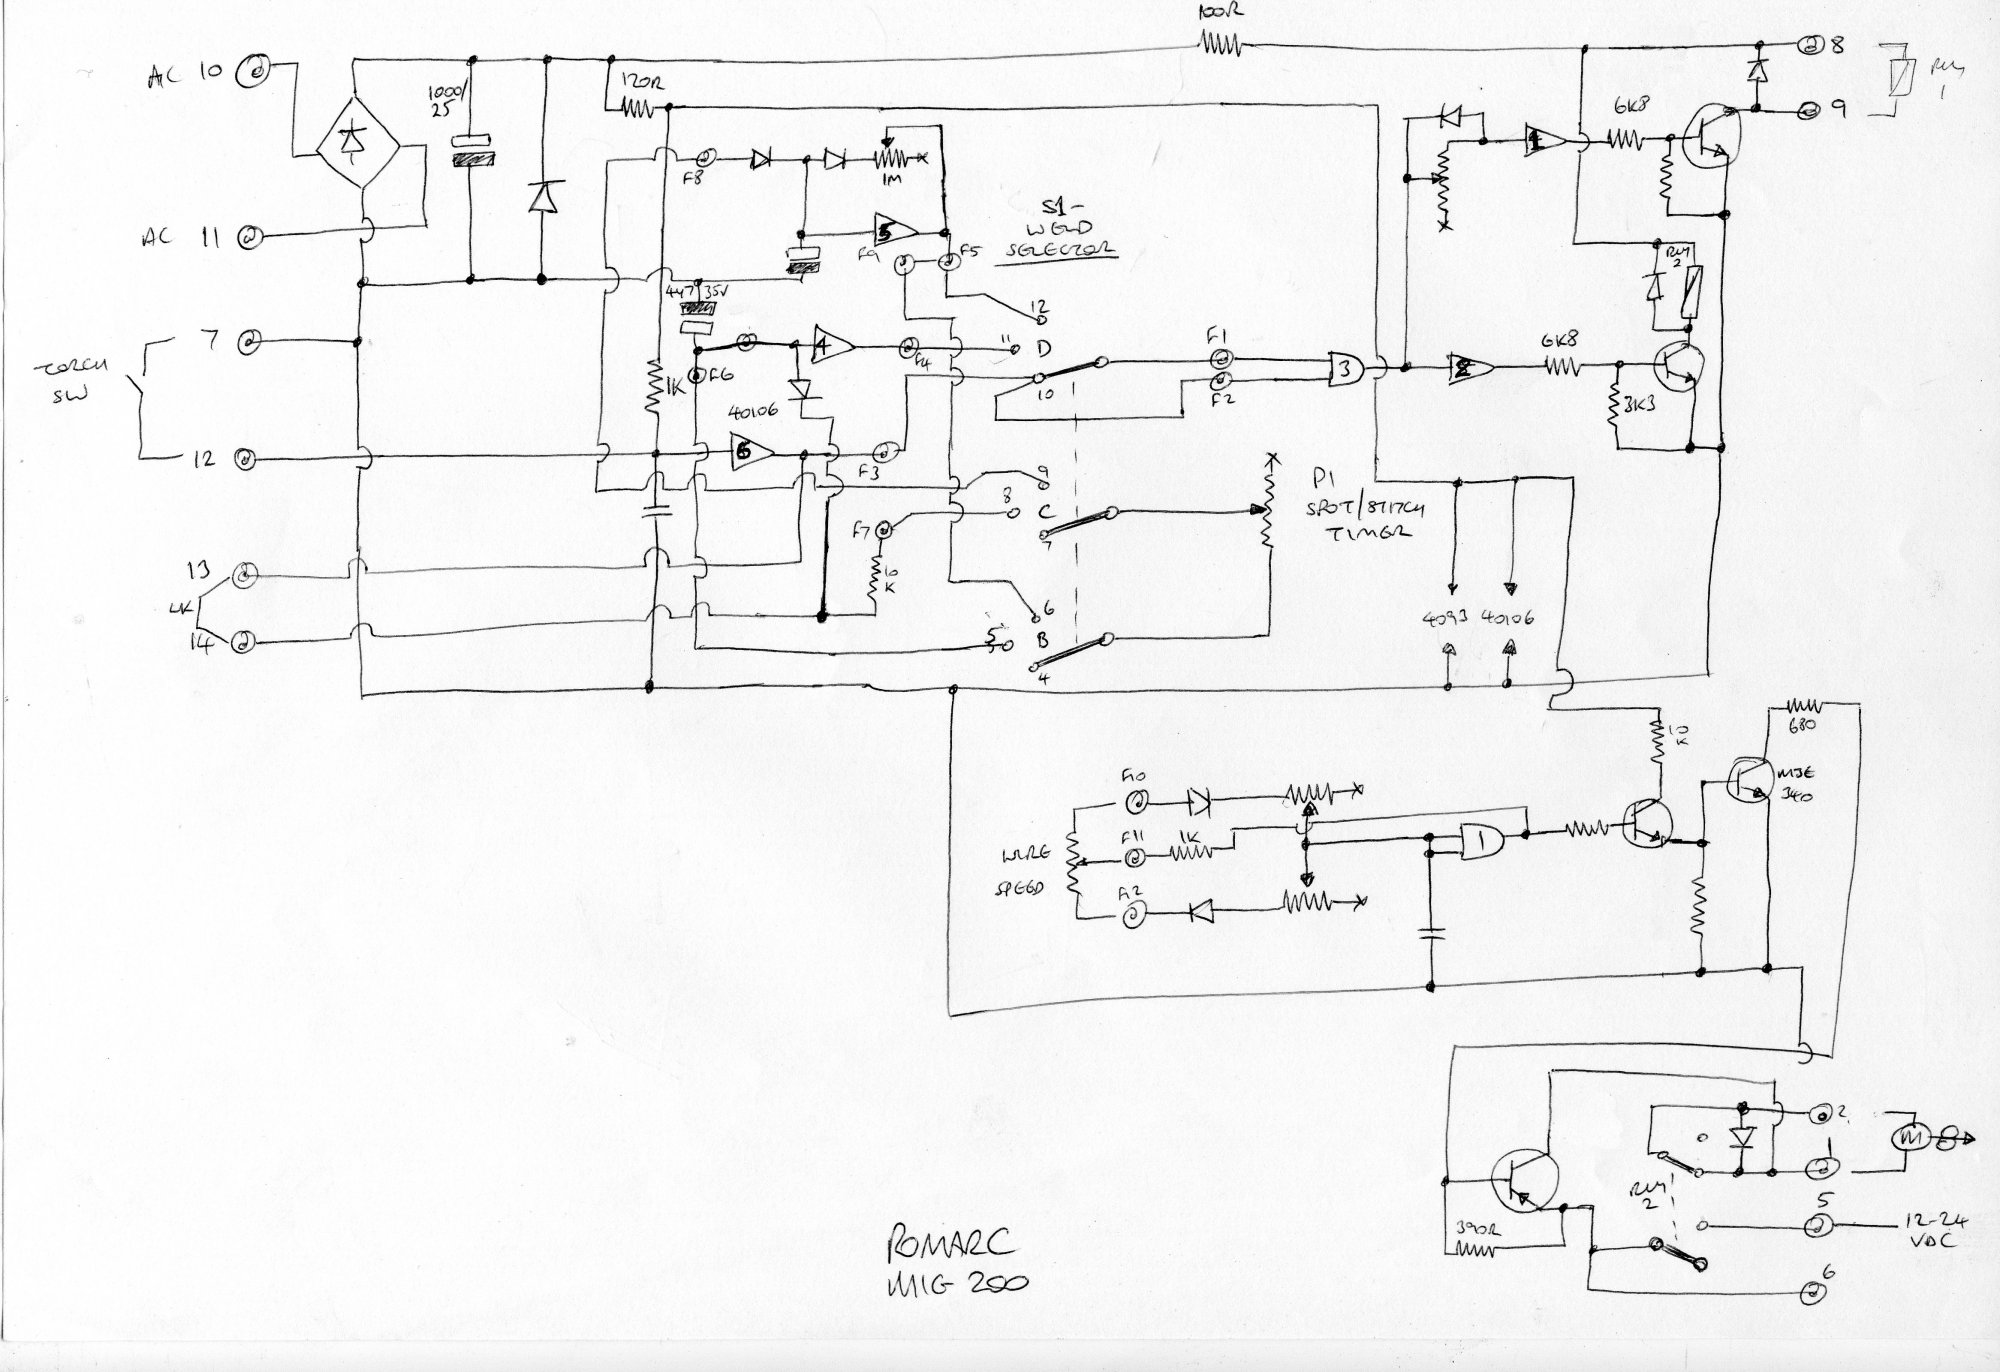 100R
AC 10
1000/
25
120R
8
RLY
1
9
6K8
F8
1M
AC 11
S1-
WELD
SELECTOR
F9
F5
RLY
2
447 35V
12
7
11
D
4
F4
F1
3
2
6K8
TORCH
SW
1K
F6
10
F2
3K3
40106
12
6
F3
9
8
C
7
P1
SPOT/STITCH
TIMER
F7
13
10
K
LK
14
6
5
B
4
4093
40106
680
10
K
MJE
340
F10
F11
1K
1
WIRE
SPEED
F12
2
M
1
RLY
2
5
12-24
VDC
390R
6
ROMARC
MIG 200